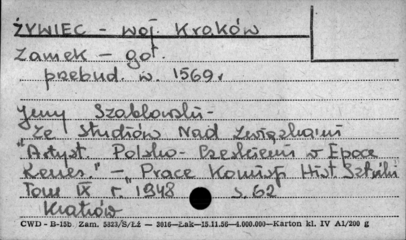 ŻYWIEC - woj. Kraków
Zamek - got.
przebud. w. 1569r
Jerzy Szabłowski -
"Ze studiów Nad Związkami
"Artyst. Polsko - Czeskiemi w Epoce
Renes." - "Prace Komisp Hist Sztuki
Tom IX r. 1948 s. 62
Kraków
CWD - B-15b Zam. 5823/S/Łż — 3616—Łak—15.11.56—4.000.000—Karton kl. IV A1/200 g